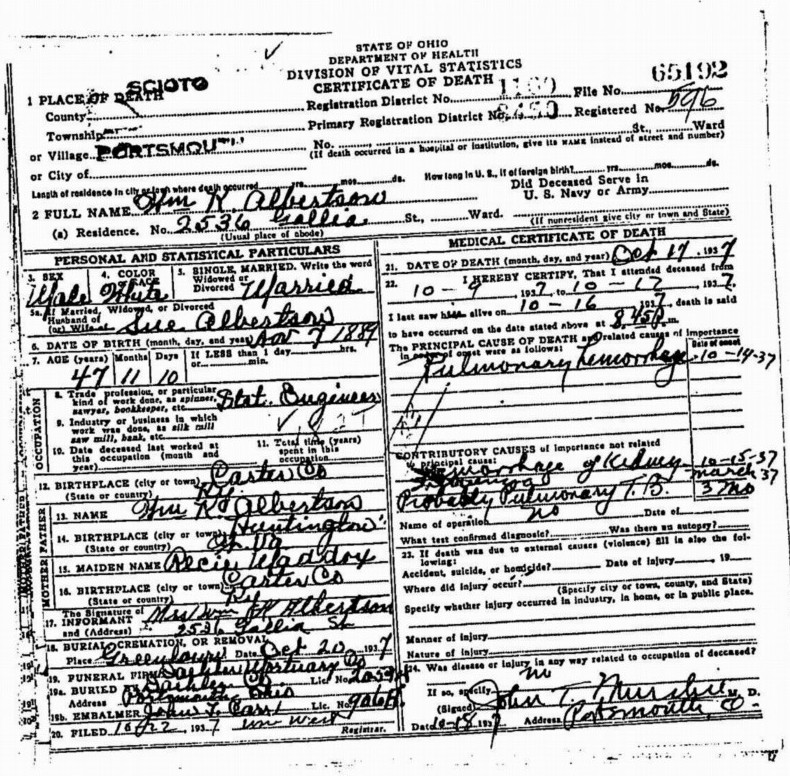 STATE OF OHIO
DEPARTMENT OF HEALTH
DIVISION OF VITAL STATISTICS
CERTIFICATE OF DEATH
1 PLACE OF DEATH
SCIOTO
County
Registration District No. 1160 File No. 65192
Township
Primary Registration District No. Registered No. 596
or Village PORTSMOUTH
No. St., Ward
(If death occurred in a hospital or institution, give its NAME instead of street and number)
or City of
Length of residence in city or town where death occurred yrs. mos. ds. How long in U. S., if of foreign birth? yrs. mos. ds.
2 FULL NAME Wm R. Albertson
Did Deceased Serve in
U. S. Navy or Army
(a) Residence. No. 2536 Gallia St., Ward.
(Usual place of abode) (If nonresident give city or town and State)
PERSONAL AND STATISTICAL PARTICULARS
3. SEX 4. COLOR 5. SINGLE, MARRIED, Write the word
Widowed or
Divorced
Male White Married
5a. If Married, Widowed, or Divorced
Husband of
(or) Wife of Sue Albertson
6. DATE OF BIRTH (month, day, and year) Nov 7 1889
7. AGE (years) Months Days If LESS than 1 day hrs.
or min.
47 11 10
OCCUPATION
8. Trade, profession, or particular
kind of work done, as spinner,
sawyer, bookkeeper, etc. Stat. Engineer
9. Industry or business in which
work was done, as silk mill
saw mill, bank, etc.
10. Date deceased last worked at
this occupation (month and
year)
11. Total time (years)
spent in this
occupation
12. BIRTHPLACE (city or town) Carter Co
(State or country) Ky.
FATHER
13. NAME Wm R Albertson
14. BIRTHPLACE (city or town) Huntington
(State or country) W. Va
MOTHER
15. MAIDEN NAME Maddox
16. BIRTHPLACE (city or town) Carter Co
(State or country) Ky
The Signature of
17. INFORMANT Mrs Wm Albertson
and (Address) 2536 Gallia St
18. BURIAL, CREMATION, OR REMOVAL
Place Greenlawn Date Oct 20 1937
19. FUNERAL FIRM Mortuary Co
19a. BURIED Lic. No.
Address Portsmouth, Ohio
19b. EMBALMER John F. Carr Lic. No.
20. FILED 10/22, 1937 Registrar.
MEDICAL CERTIFICATE OF DEATH
21. DATE OF DEATH (month, day, and year) Oct 17 1937
22. I HEREBY CERTIFY, That I attended deceased from
10-9 1937, to 10-17 1937.
I last saw him alive on 10-16 1937, death is said
to have occurred on the date stated above at 8:45 P m.
The PRINCIPAL CAUSE OF DEATH and related causes of importance
in order of onset were as follows: Date of onset
Pulmonary hemorrhage 10-14-37
CONTRIBUTORY CAUSES of importance not related
to principal cause:
Hemorrhage of Kidney 10-15-37
March 37
Probably Pulmonary T.B. 3 mo
Name of operation no Date of
What test confirmed diagnosis? Was there an autopsy?
23. If death was due to external causes (violence) fill in also the following:
Accident, suicide, or homicide? Date of injury , 19
Where did injury occur?
(Specify city or town, county, and State)
Specify whether injury occurred in industry, in home, or in public place.
Manner of injury
Nature of injury
24. Was disease or injury in any way related to occupation of deceased?
no
If so, specify
(Signed) John T. M. D.
Date 10-18 1937 Address Portsmouth, O.